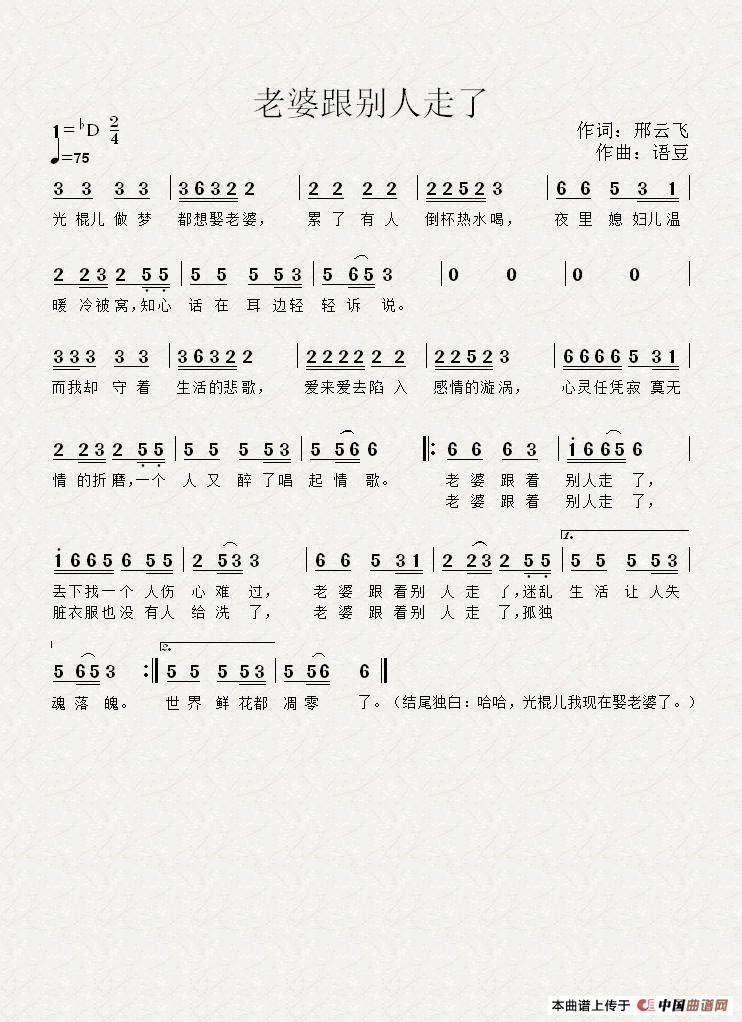 老婆跟别人走了
1=♭D 2/4
♩=75
作词：邢云飞
作曲：语豆
3 3 3 3 | 3 6 3 2 2 2 | 2 2 2 2 | 2 2 5 2 3 | 6 6 5 3 1 |
光棍儿做梦 都想娶老婆， 累了有人 倒杯热水喝， 夜里媳妇儿温
2 2 3 2 5 5 | 5 5 5 5 3 | 5 6 5 3 | 0 0 | 0 0 |
暖冷被窝，知心 话在耳边轻 轻诉说。
3 3 3 3 3 | 3 6 3 2 2 | 2 2 2 2 2 2 | 2 2 5 2 3 | 6 6 6 6 5 3 1 |
而我却守着 生活的悲歌， 爱来爱去陷入 感情的漩涡， 心灵任凭寂寞无
2 2 3 2 5 5 | 5 5 5 5 3 | 5 5 6 6 ‖: 6 6 6 3 | 1 6 6 5 6 |
情的折磨，一个 人又醉了唱 起情歌。 老婆跟着 别人走了，
老婆跟着 别人走了，
1 6 6 5 5 5 | 2 5 3 3 | 6 6 5 3 1 | 2 2 3 2 5 5 | 1. 5 5 5 5 3 |
丢下找一个人伤 心难过， 老婆跟着别 人走了，迷乱 生活让人失
脏衣服也没有人 给洗了， 老婆跟着别 人走了，孤独
5 6 5 3 :‖ 2. 5 5 5 5 3 | 5 5 6 6 ‖
魂落魄。 世界鲜花都 凋零了。（结尾独白：哈哈，光棍儿我现在娶老婆了。）
本曲谱上传于 中国曲谱网